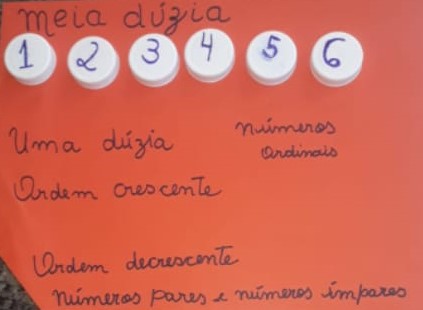 meia dúzia
1 2 3 4 5 6
Uma dúzia
números
ordinais
Ordem crescente
Ordem decrescente
números pares e números ímpares